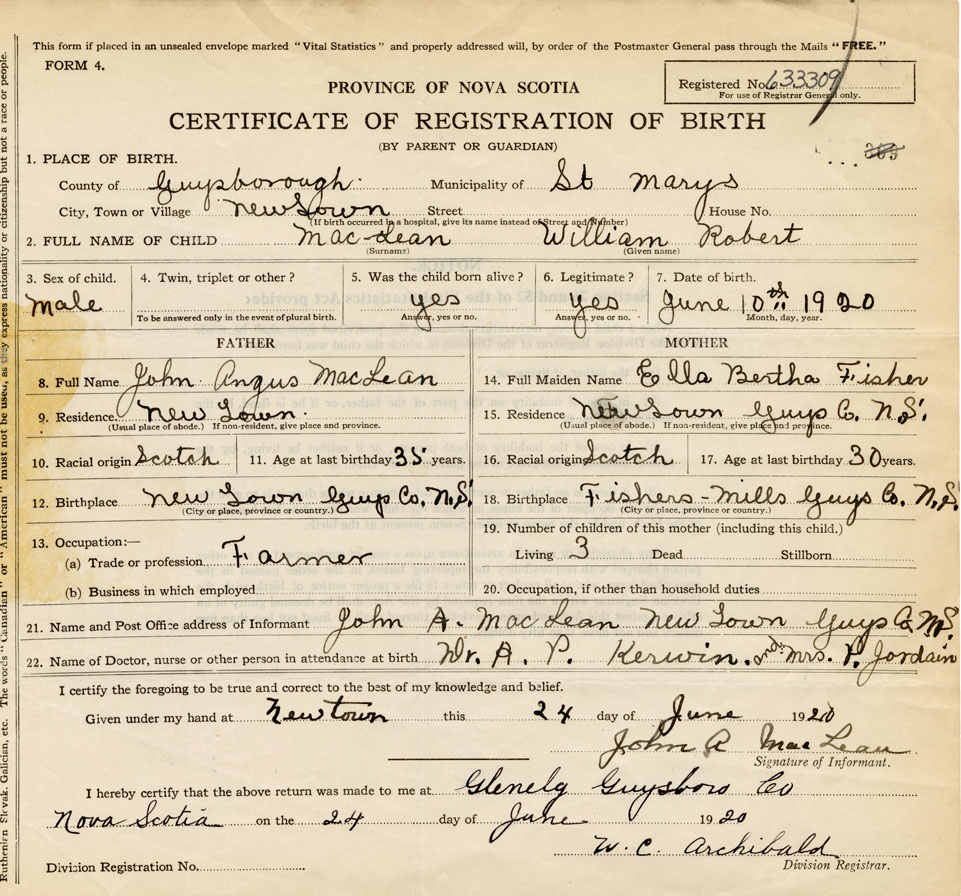 This form if placed in an unsealed envelope marked "Vital Statistics" and properly addressed will, by order of the Postmaster General pass through the Mails "FREE."
FORM 4.
Registered No. 633309
For use of Registrar General only.
PROVINCE OF NOVA SCOTIA
CERTIFICATE OF REGISTRATION OF BIRTH
(BY PARENT OR GUARDIAN)
1. PLACE OF BIRTH.
County of Guysborough Municipality of St Marys
City, Town or Village New Town Street House No.
(If birth occurred in a hospital, give its name instead of Street and Number)
2. FULL NAME OF CHILD Mac Lean William Robert
(Surname) (Given name)
3. Sex of child. 4. Twin, triplet or other? 5. Was the child born alive? 6. Legitimate? 7. Date of birth.
Male yes yes June 10th 1920
To be answered only in the event of plural birth. Answer, yes or no. Answer, yes or no. Month, day, year.
FATHER MOTHER
8. Full Name John Angus MacLean 14. Full Maiden Name Ella Bertha Fisher
9. Residence New Town. 15. Residence New Town Guys Co. N.S.
(Usual place of abode.) If non-resident, give place and province. (Usual place of abode.) If non-resident, give place and province.
10. Racial origin Scotch 11. Age at last birthday 35 years. 16. Racial origin Scotch 17. Age at last birthday 30 years.
12. Birthplace New Town Guys Co. N.S. 18. Birthplace Fishers-Mills Guys Co. N.S.
(City or place, province or country.) (City or place, province or country.)
13. Occupation:— 19. Number of children of this mother (including this child.)
(a) Trade or profession Farmer Living 3 Dead Stillborn
(b) Business in which employed 20. Occupation, if other than household duties
21. Name and Post Office address of Informant John A. MacLean New Town Guys Co N.S.
22. Name of Doctor, nurse or other person in attendance at birth Dr. A. P. Kerwin. and Mrs. P. Jordain
I certify the foregoing to be true and correct to the best of my knowledge and belief.
Given under my hand at Newtown this 24 day of June 1920
John A MacLean
Signature of Informant.
I hereby certify that the above return was made to me at Glenelg Guysboro Co
Nova Scotia on the 24 day of June 1920
W. C. Archibald
Division Registrar.
Division Registration No.
Ruthenian Slovak, Galician, etc. The words "Canadian" or "American" must not be used, as they express nationality or citizenship but not a race or people.